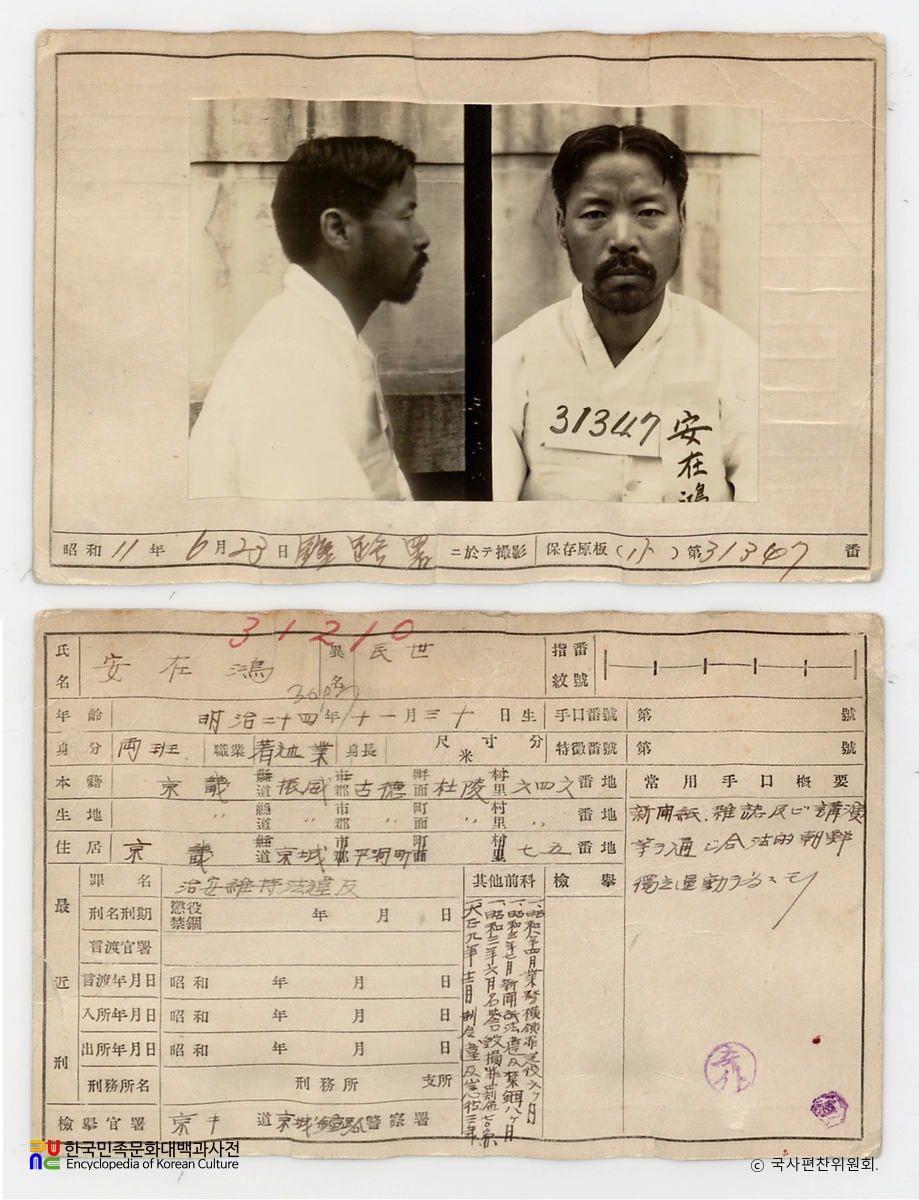 31347
安在鴻
昭和 11 年 6 月 23 日 鍾路署 ニ於テ撮影 保存原板(小)第 31347 番
31210
氏名 安在鴻 異名 民世 指紋番號
年齡 明治二十四年十一月三十日生 手口番號 第 號
身分 両班 職業 著述業 身長 尺寸分 米 特徵番號 第 號
本籍 京畿 縣道 振威 市郡 古德 町面 杜陵 村里 六四六 番地 常用手口概要
生地 〃 縣道 〃 市郡 〃 町面 〃 村里 〃 番地 新聞紙、雜誌及ビ講演
住居 京畿 縣道 京城 市郡 平洞町 面 村里 七五 番地 等ヲ通ジ合法的朝鮮
獨立運動
最近刑
罪名 治安維持法違反 其他前科 檢擧
刑名刑期 懲役 禁錮 年 月 日
言渡官署
言渡年月日 昭和 年 月 日
入所年月日 昭和 年 月 日
出所年月日 昭和 年 月 日
刑務所名 刑務所 支所
檢擧官署 京キ 道 京城鍾路 警察署
一、昭和八年四月業務橫領罪懲役六ケ月
一、昭和三年七月新聞紙法違反禁錮八ケ月
一、昭和三年六月名譽毀損罪罰金
一、大正九年十二月制令違反懲役三年
한국민족문화대백과사전
Encyclopedia of Korean Culture
© 국사편찬위원회.